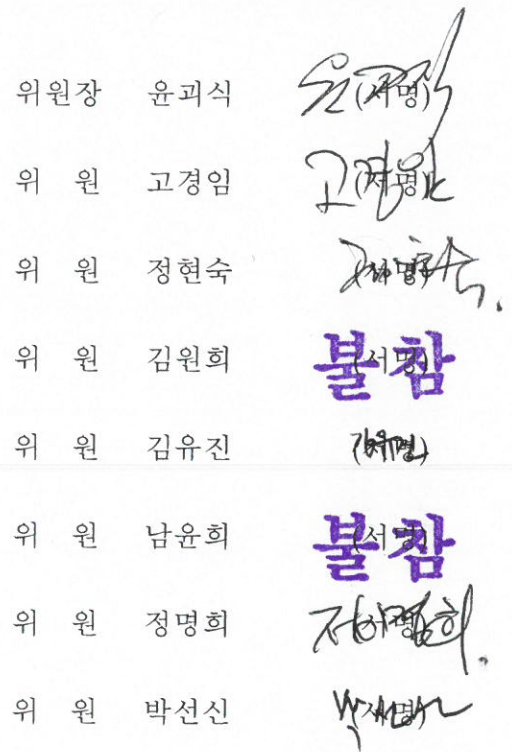 위원장 윤괴식 (서명)
위 원 고경임 (서명)
위 원 정현숙 (서명)
위 원 김원희 (서명) 불참
위 원 김유진 (서명)
위 원 남윤희 (서명) 불참
위 원 정명희 (서명)
위 원 박선신 (서명)